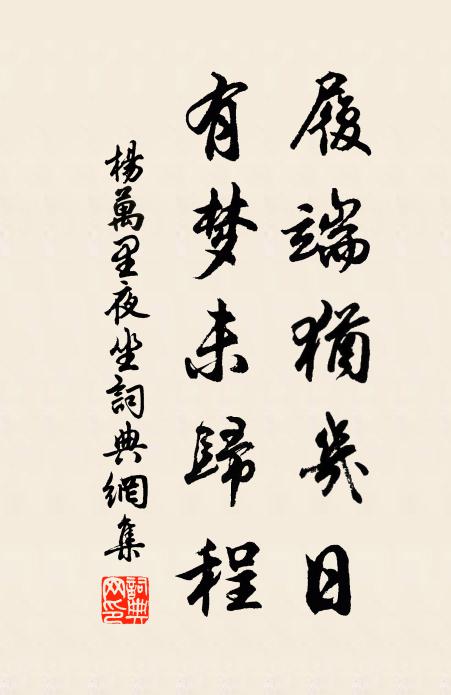 履端猶幾日
有梦未歸程
楊萬里夜坐詞典網集
詞典网印